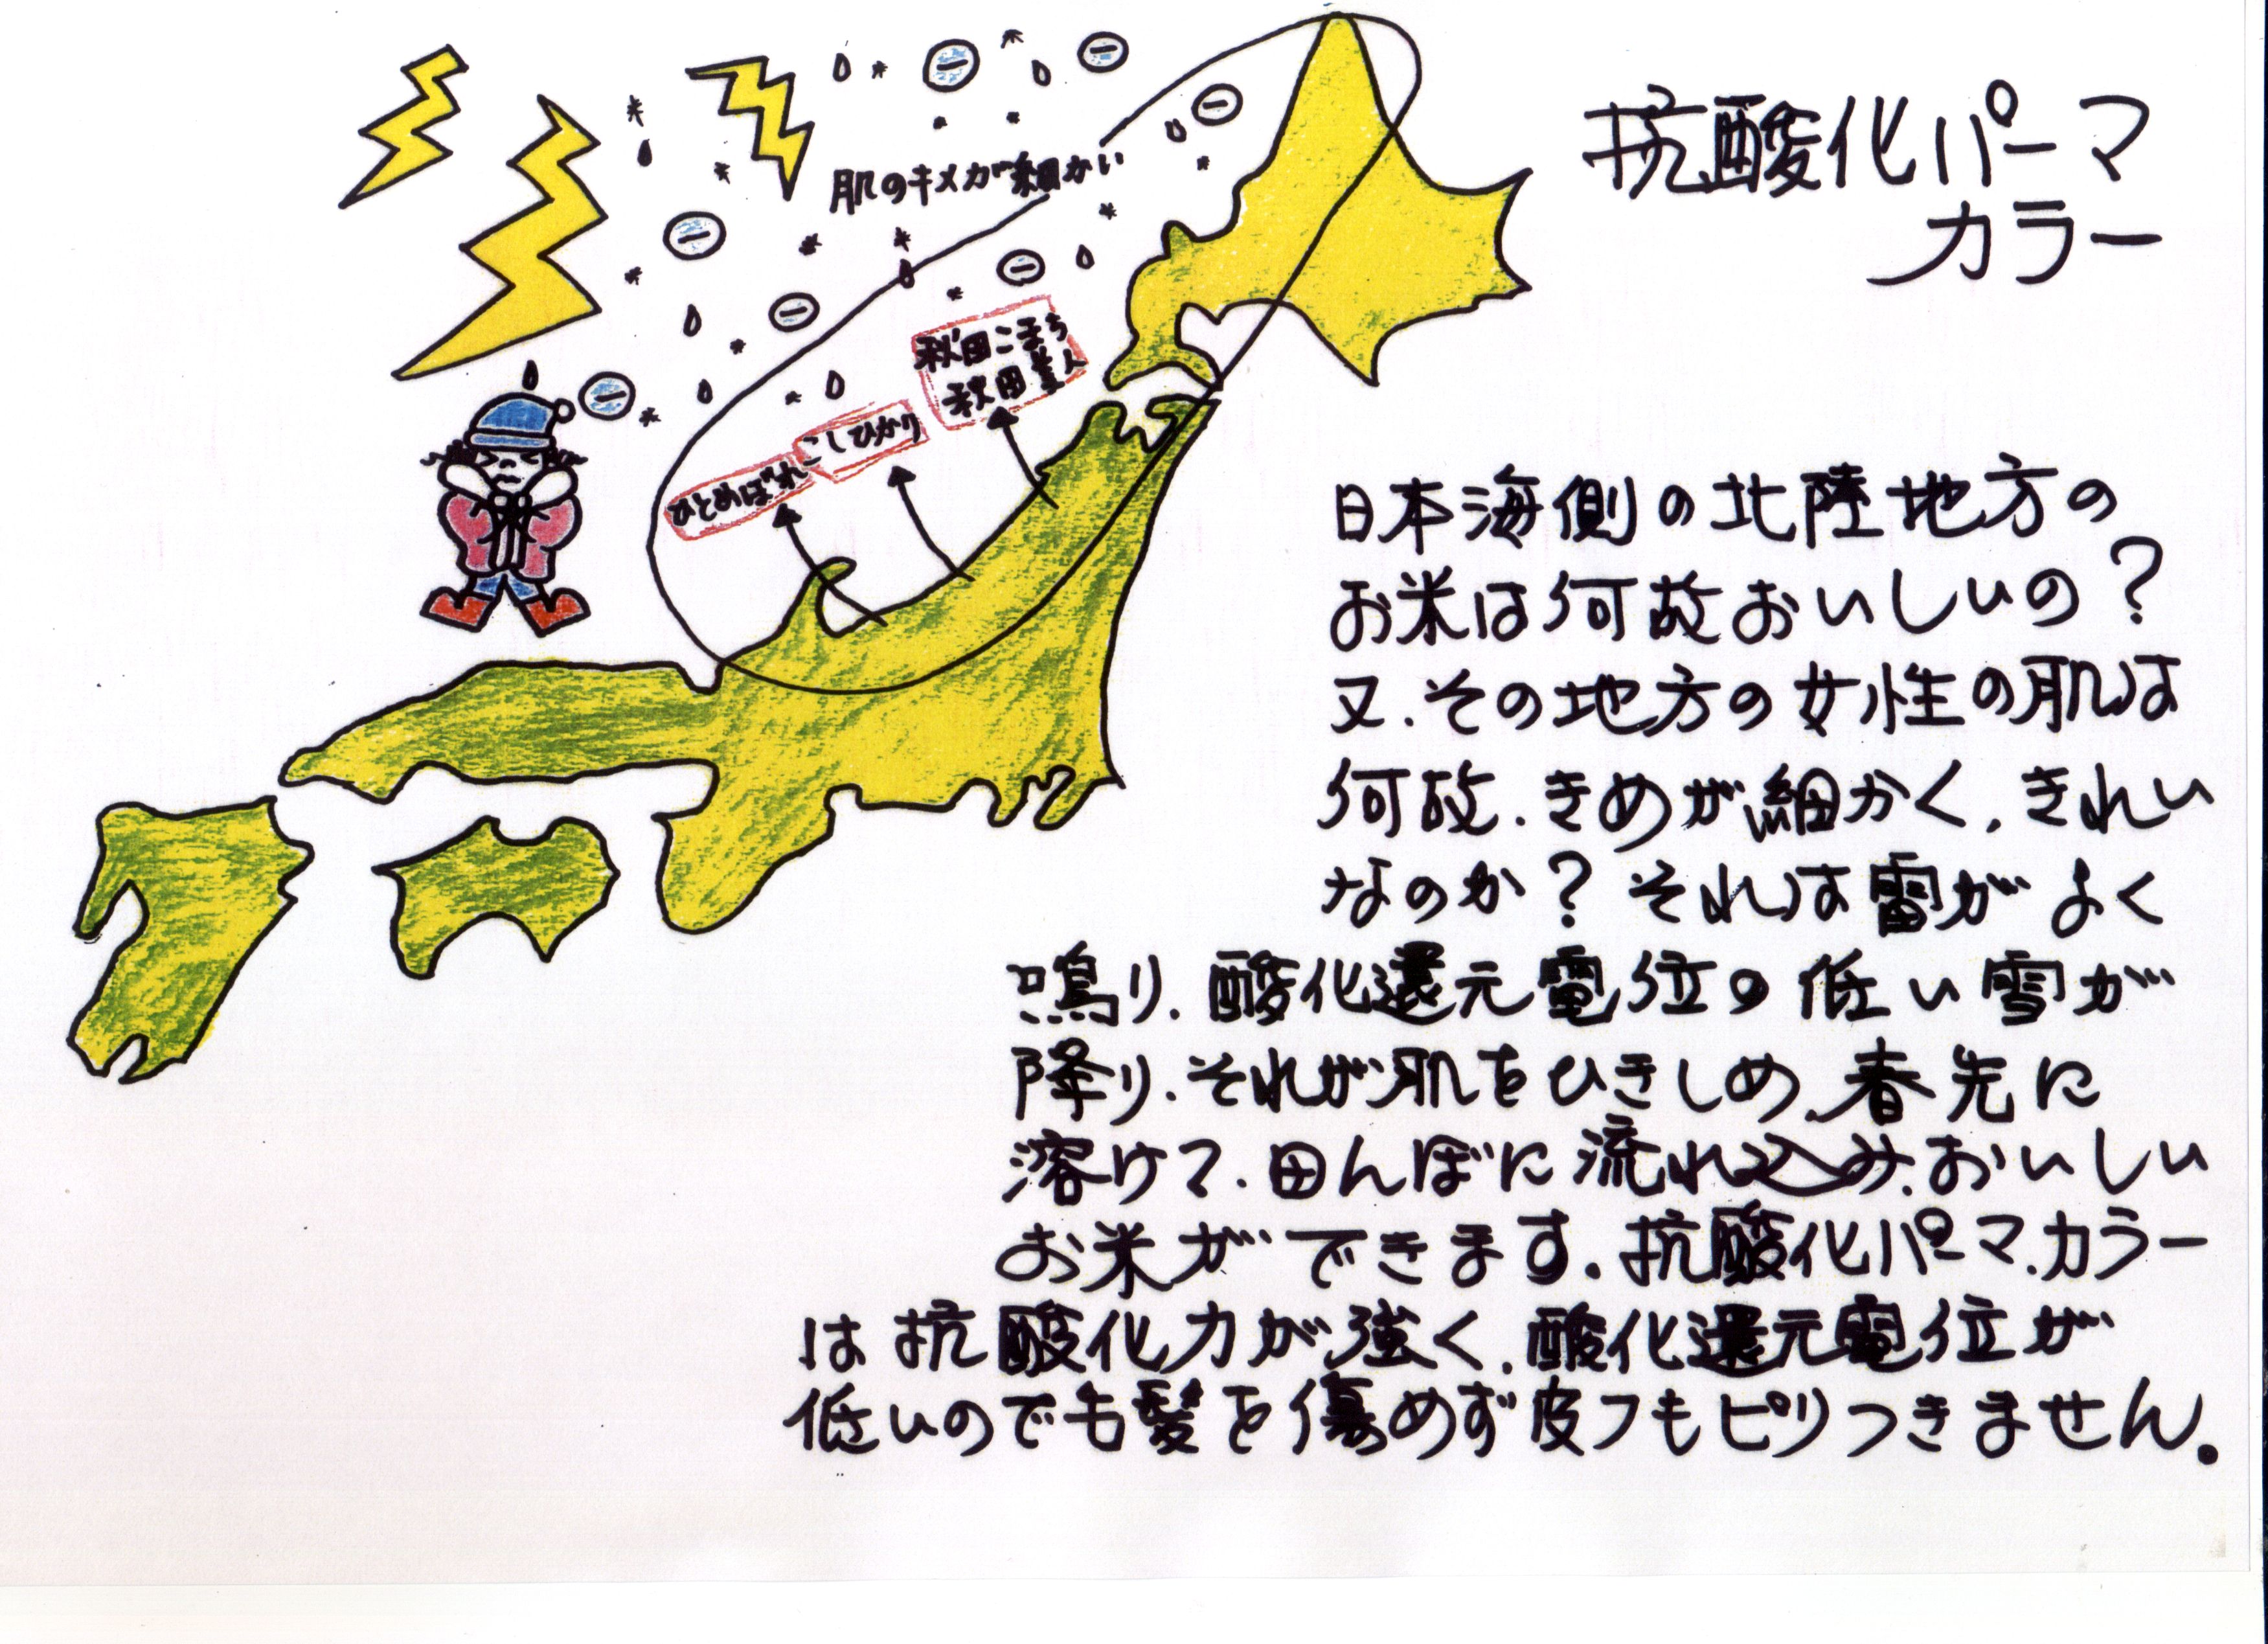 抗酸化パーマ
カラー
肌のキメが細かい
秋田こまち
秋田美人
こしひかり
ひとめぼれ
日本海側の北陸地方の
お米は何故おいしいの？
又.その地方の女性の肌は
何故.きめが細かく,きれい
なのか？それは雷がよく
鳴り.酸化還元電位の低い雪が
降り.それが肌をひきしめ、春先に
溶けて.田んぼに流れ込み.おいしい
お米ができます.抗酸化パーマ.カラー
は抗酸化力が強く.酸化還元電位が
低いのでも髪を傷めず皮フもピリつきません。